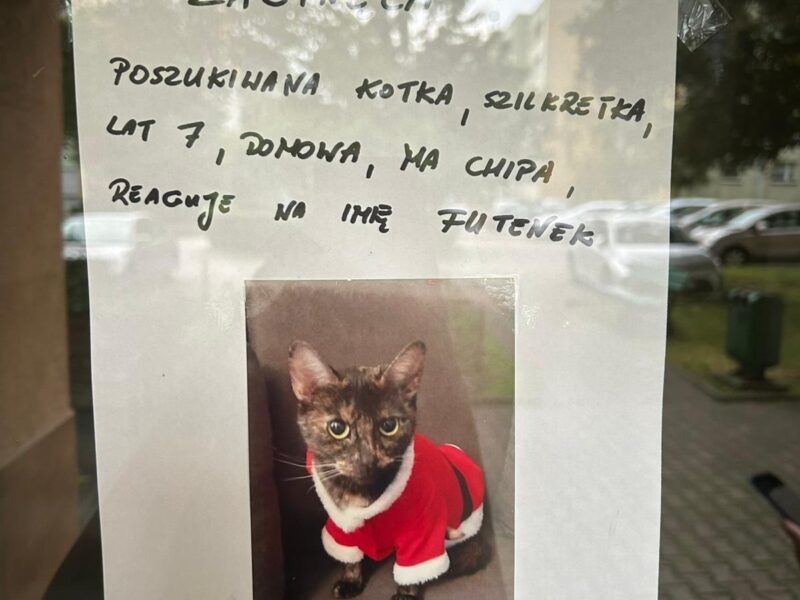 ZAGINĘŁA
POSZUKIWANA KOTKA, SZILKRETKA,
LAT 7, DOMOWA, MA CHIPA,
REAGUJE NA IMIĘ FUTENEK